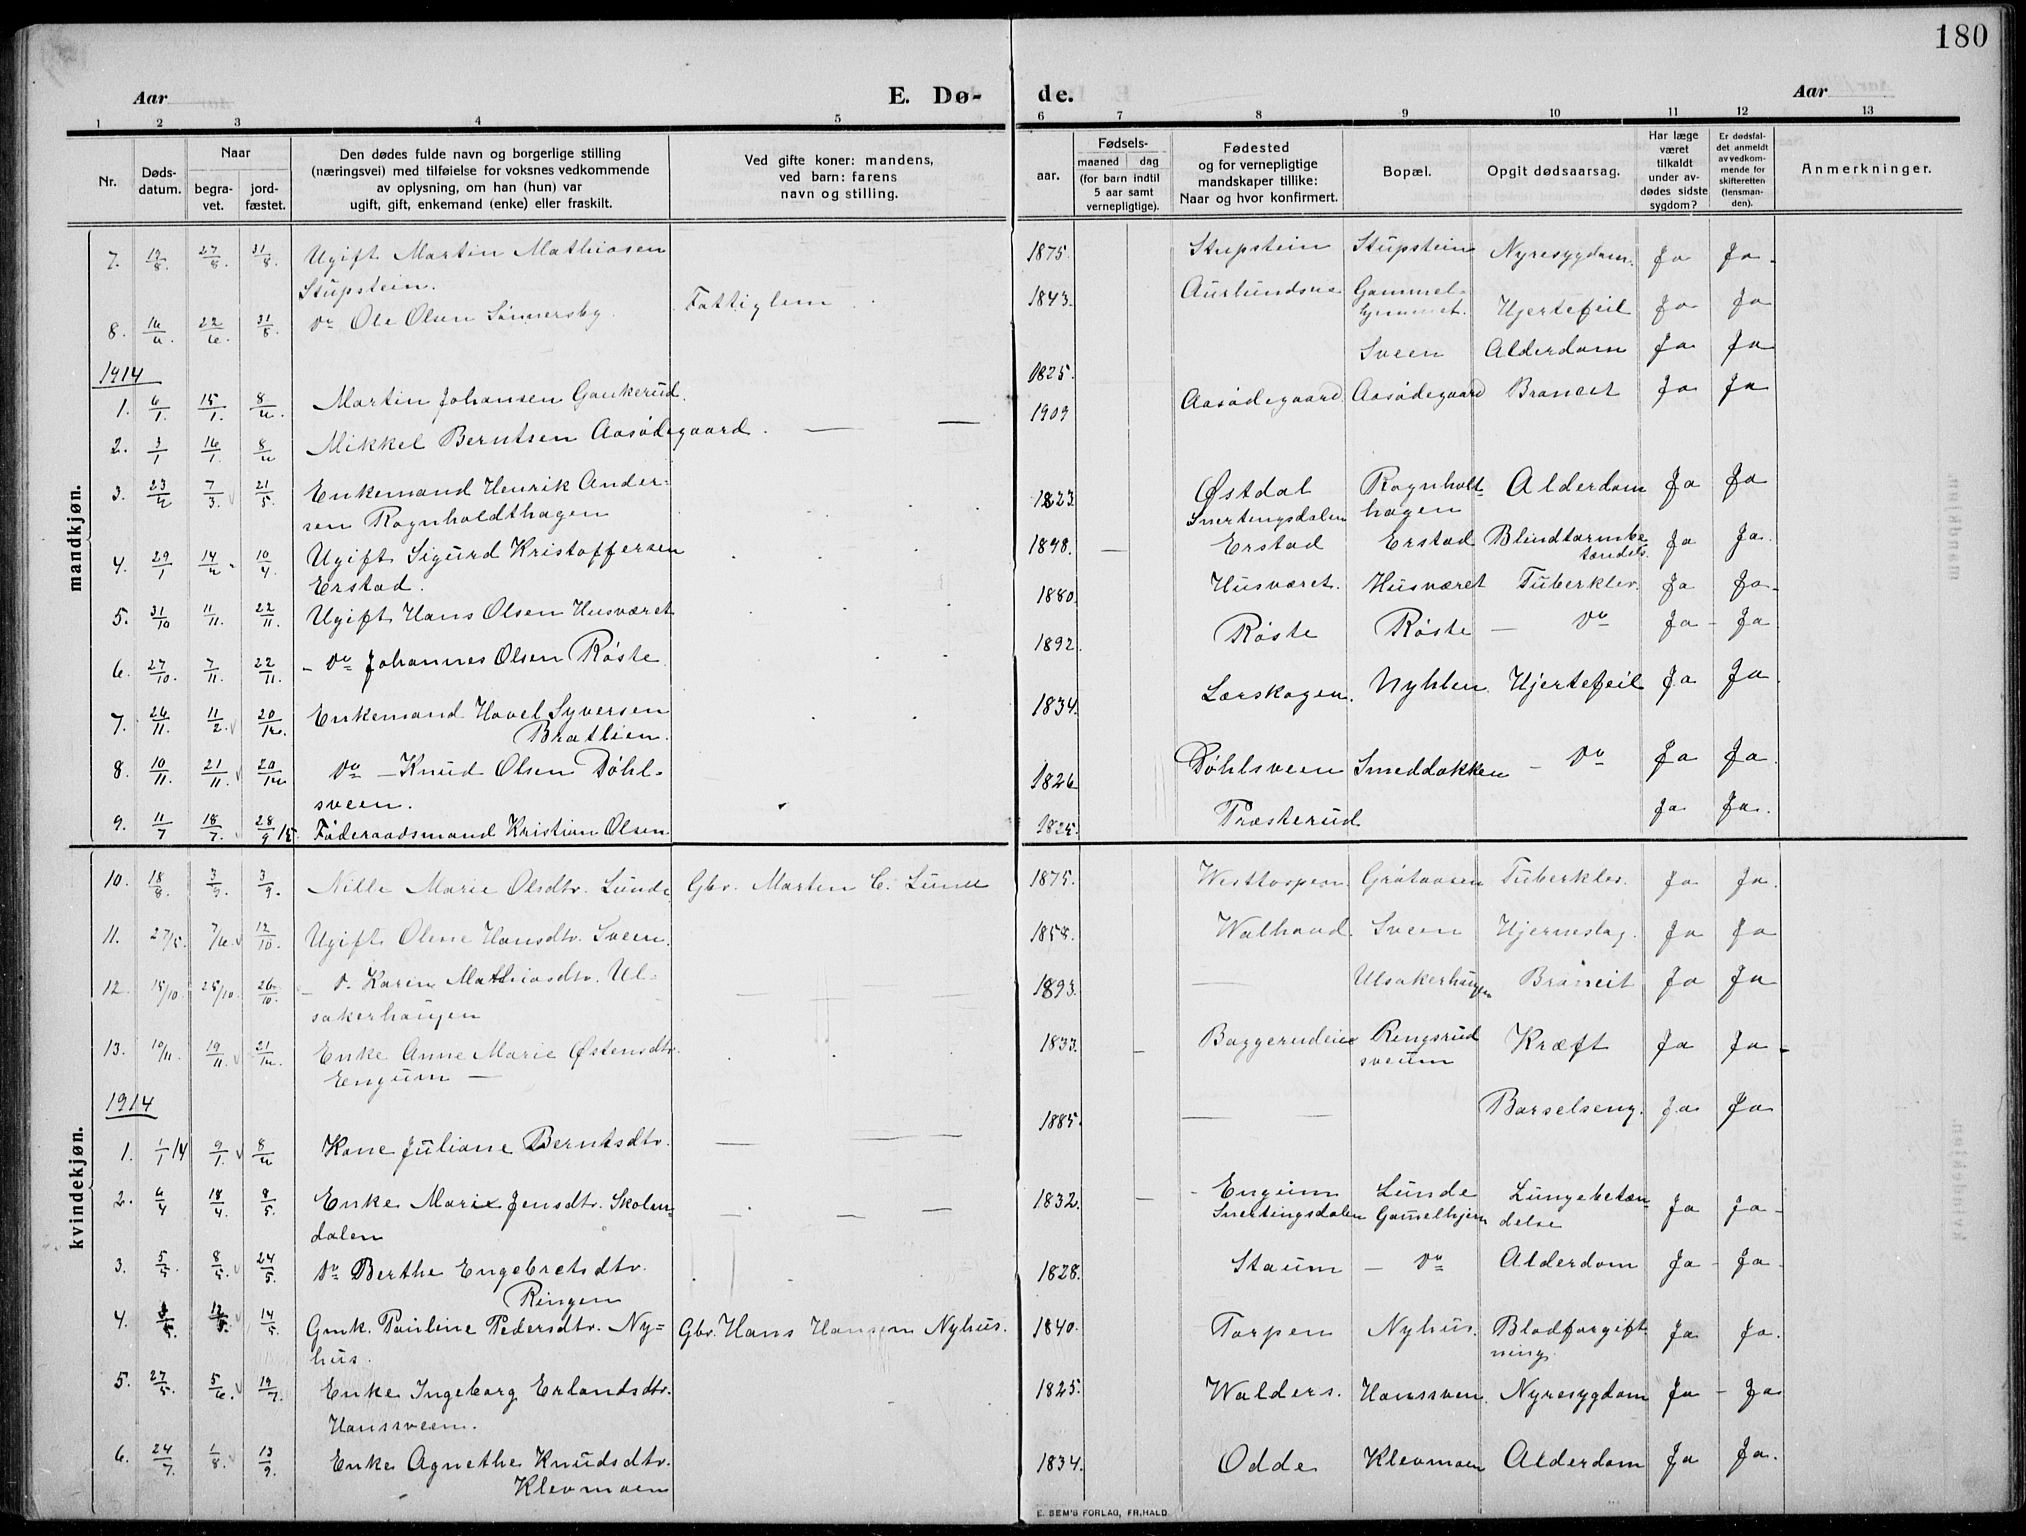 180
Aar E. Dø- de. Aar
1 2 3 4 5 6 7 8 9 10 11 12 13
Nr.
Døds-
datum.
Naar
begra-
vet.
jord-
fæstet.
Den dødes fulde navn og borgerlige stilling
(næringsvei) med tilføielse for voksnes vedkommende
av oplysning, om han (hun) var
ugift, gift, enkemand (enke) eller fraskilt.
Ved gifte koner: mandens,
ved barn: farens
navn og stilling.
Fødsels-
aar.
maaned dag
(for barn indtil
5 aar samt
vernepligtige).
Fødested
og for vernepligtige
mandskaper tillike:
Naar og hvor konfirmert.
Bopæl.
Opgit dødsaarsag.
Har læge
været
tilkaldt
under av-
dødes sidste
sygdom?
Er dødsfal-
det anmeldt
av vedkom-
mende for
skifteretten
(lensman-
den).
Anmerkninger.
mandkjøn.
7. 19/8 27/8. 31/8. Ugift Martin Mathiasen 1875. Stupstein Stupstein Nyresygdom. Ja Ja
Stupstein.
8. 22/6. 31/8 Do Ole Olsen Sinnersby. Fattiglem 1843. Gammel- Hjertefeil Ja Ja
Sveen Alderdom Ja Ja
1914 1825.
1. 6/1. 15/1. 8/4. Martin Johansen Gaukerud.
2. 3/1 16/1. 8/4 Mikkel Berntsen Aasødegaard. — — 1909 Aasødegaard Aasødegaard Ja Ja
3. 23/2 7/3. 21/5. Enkemand Henrik Ander- 1823. Østdal Rognholt- Alderdom Ja Ja
sen Rognholdthagen Snertingsdalen hagen
4. 29/1 14/2 10/4. Ugift Sigurd Kristoffersen 1898. — Erstad Erstad Blindtarmbe- Ja Ja.
Erstad. tændels.
5. 31/10 11/11. 22/11. Ugift Hans Olsen Husværet 1880. Husværet. Husværet Tuberklos. Ja Ja-
6. 27/10. 7/11. 22/11. - Do Johannes Olsen Røste 1892. Røste Røste — Do Ja - Ja
7. 26/11. 11/2. 20/12. Enkemand Hovel Syversen 1834. Lærskogen. Nyhlen Hjertefeil Ja Ja
Bratlien.
8. 10/11. 21/11. 20/12 Do — Knud Olsen Døhl- 1826 Døhlsveen Smeddokken — Do Ja Ja.
sveen.
9. 11/7 18/7. 28/9 15. Føderaadsmand Kristian Olsen 1825. Præsterud Ja Ja.
kvindekjøn.
10. 18/8. 3/9. 3/9. Nille Marie Olsdtr. Lunde Gbr. Martin C. Lunde 1875. Westtorpen. Grøtaasen Tuberklos. Ja Ja.
11. 27/5. 7/6 12/10. Ugift Oline Hansdtr. Sveen. 1858. Walhaud. Sveen Hjerneslag. Ja Ja
12. 15/10 25/10. 26/10. — D. Karin Mathiasdtr. Ul- — — 1893. — Ulsakerhaugen Ja Ja
sakerhaugen
13. 10/11. 19/11. 21/12. Enke Anne Marie Østensdtr. 1833. — Baggerudeie Ringsrud Kræft Ja Ja -
Engum — sveum
1914 1885. — — Barselseng. Ja Ja
1. 1/1 14 9/1. 8/4 Kone Juliane Berntsdtr. — — —
2. 6/4 18/4. 8/5. Enke Marie Jensdtr. Skolm- — — — 1832. — Engum Lunde Lungebetæn- Ja Ja -
dalen Snertingsdalen Gamelhjem delse
3. 5/5. 8/5. 24/5. Do Berthe Engebretsdtr. 1828. Staum — Do Alderdom Ja - Ja -
Ringen
4. 14/5. Gmk. Pauline Pedersdtr. Ny= Gbr. Hans Hansen Nyhus. 1840. Torpen Nyhus. Blodforgift- Ja Ja.
hus. ning.
5. 27/5. 5/6. 19/7. Enke Ingeborg Erlandsdtr. 1825. Walders. Hanssveen Nyresygdom Ja - Ja
Hanssveen.
6. 24/7. 1/8. 13/9. Enke Agnethe Knudsdtr. 1834. Odde Klevmoen Alderdom Ja Ja.
Klevmoen
E. SEM'S FORLAG, FR.HALD